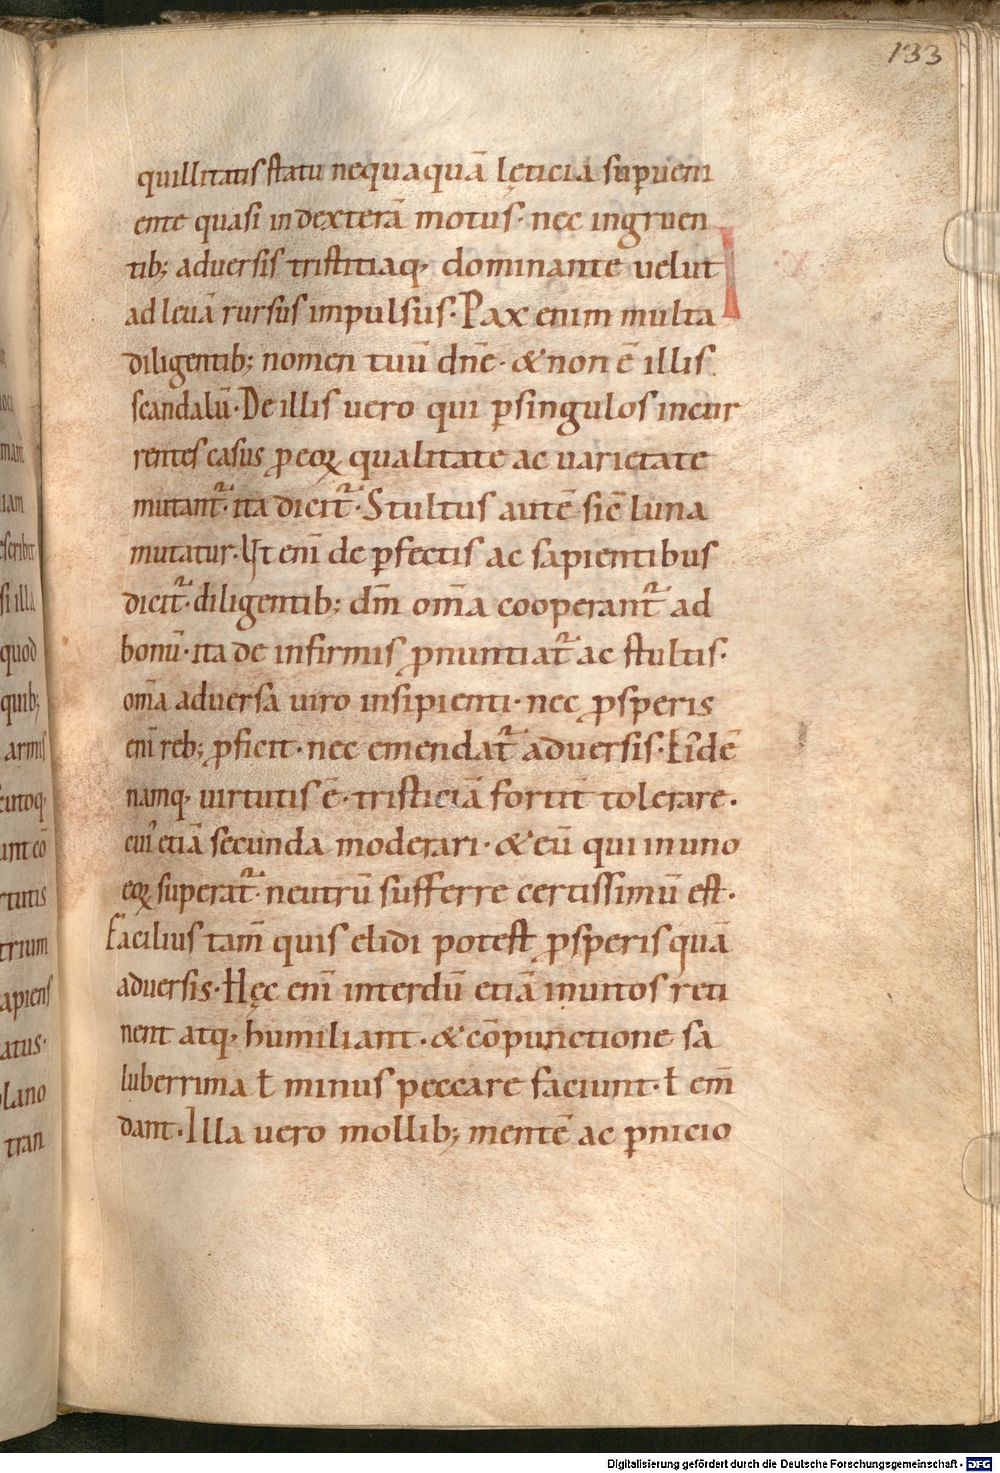 133
quillitatis statu nequaquā lęticia supueni
ente quasi in dexterā motus· nec ingruen
tib; aduersis tristitiaq; dominante uelut
ad leuā rursus impulsus· Pax enim multa
diligentib; nomen tuū dn̄e· & non ē illis
scandalū· De illis uero qui ꝑ singulos incur
rentes casus ꝓ eoꝝ qualitate ac uarietate
mutant᷑· ita dicit᷑· Stultus autē sic̄ luna
mutatur· Ut eni̅ de ꝑfectis ac sapientibus
dicit᷑· diligentib; dm̄ om̄a cooperant᷑ ad
bonū· ita de infirmis ꝓnuntiat᷑ ac stultis·
om̄a aduersa uiro insipienti· nec ꝓsperis
eni̅ reb; ꝓficit· nec emendat᷑ aduersis· Eidē
namq; uirtutis ē· tristiciā fortit̄ tolerare·
cui᾿ etiā secunda moderari· & eū qui in uno
eoꝝ superat᷑· neutrū sufferre certissimū est·
Facilius tam̄ quis elidi potest ꝓsperis quā
aduersis· Hęc eni̅ interdū etiā inuitos reti
nent atq; humiliant· & cōpunctione sa
luberrima ł minus peccare faciunt· ł em̄
dant· Illa uero mollib; mentē ac ꝑnicio
mant
iam
si illa
quod
quib;
armis
unt eō
trium
apiens
atus·
plano
tran
Digitalisierung gefördert durch die Deutsche Forschungsgemeinschaft - DFG